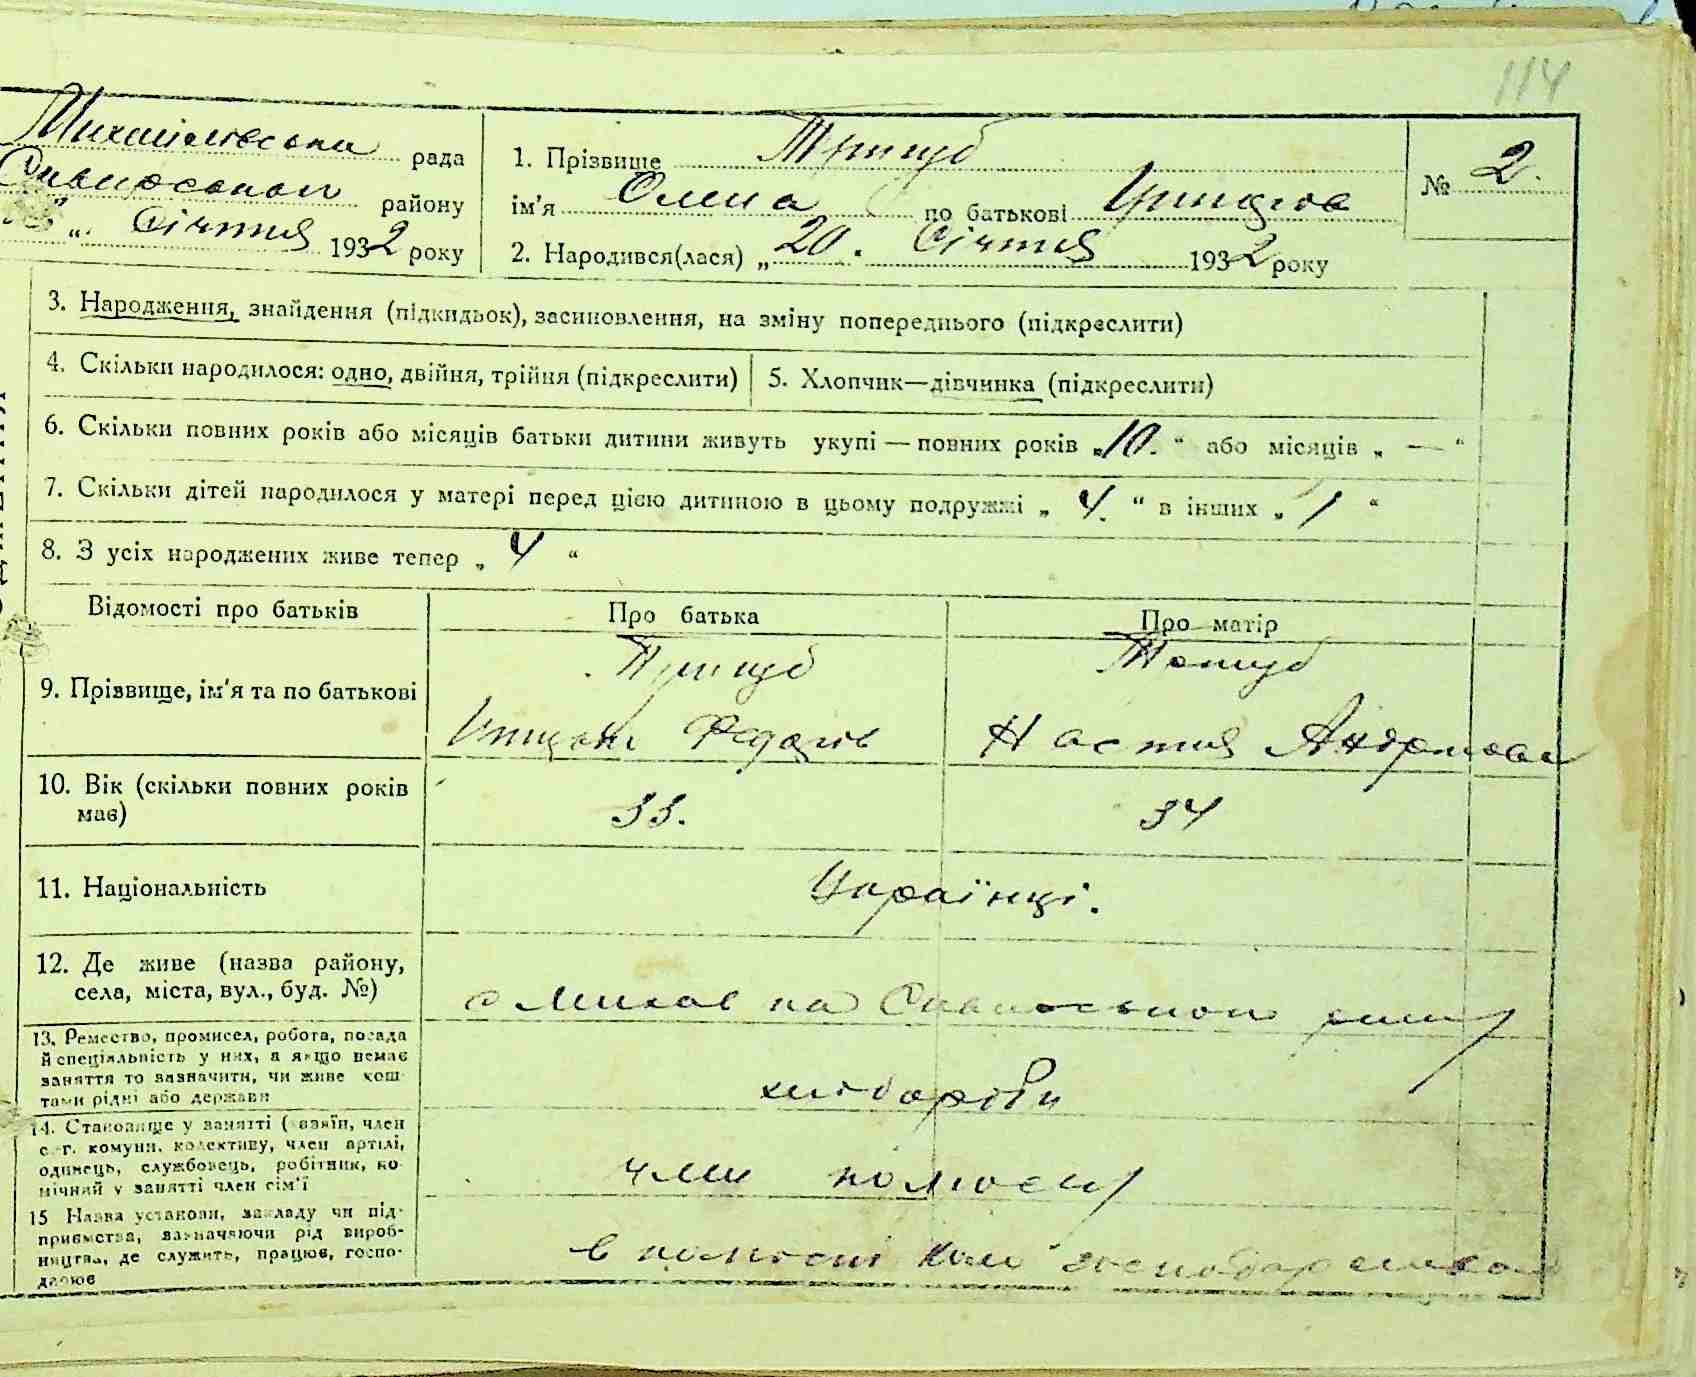 114
Михайлівська рада
району
Січня 1932 року
1. Прізвище
№ 2.
ім'я Олена по батькові
2. Народився(лася) „20. Січня 1932 року
3. Народження, знайдення (підкидьок), засиновлення, на зміну попереднього (підкреслити)
4. Скільки народилося: одно, двійня, трійня (підкреслити)
5. Хлопчик—дівчинка (підкреслити)
6. Скільки повних років або місяців батьки дитини живуть укупі — повних років „10. “ або місяців „ — “
7. Скільки дітей народилося у матері перед цією дитиною в цьому подружжі „ 4. “ в інших „ 1 “
8. З усіх народжених живе тепер „ 4 “
Відомості про батьків
Про батька
Про матір
9. Прізвище, ім'я та по батькові
Федорів
Настя Андріївна
10. Вік (скільки повних років має)
33.
34
11. Національність
Українці.
12. Де живе (назва району,
села, міста, вул., буд. №)
с
13. Ремество, промисел, робота, посада
й спеціяльність у них, а якщо немає
заняття то зазначити, чи живе кош-
тами рідні або держави
хлібороби
14. Становище у занятті (хазяїн, член
с.-г. комуни, колективу, член артілі,
одинець, службовець, робітник, по-
мічний у занятті член сім'ї
член колгоспу
15 Назва установи, закладу чи під-
приємства, зазначаючи рід вироб-
ництва, де служить, працює, госпо-
дарює
в колгоспі